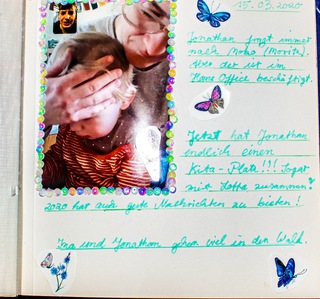 15.03.2020
Jonathan fragt immer
nach Moha (Moritz).
Aber der ist im
Home Office beschäftigt.
Jetzt hat Jonathan
endlich einen
Kita-Platz!!! Sogar
mit Lotta zusammen!
2020 hat auch gute Nachrichten zu bieten!
Ina und Jonathan gehen viel in den Wald.